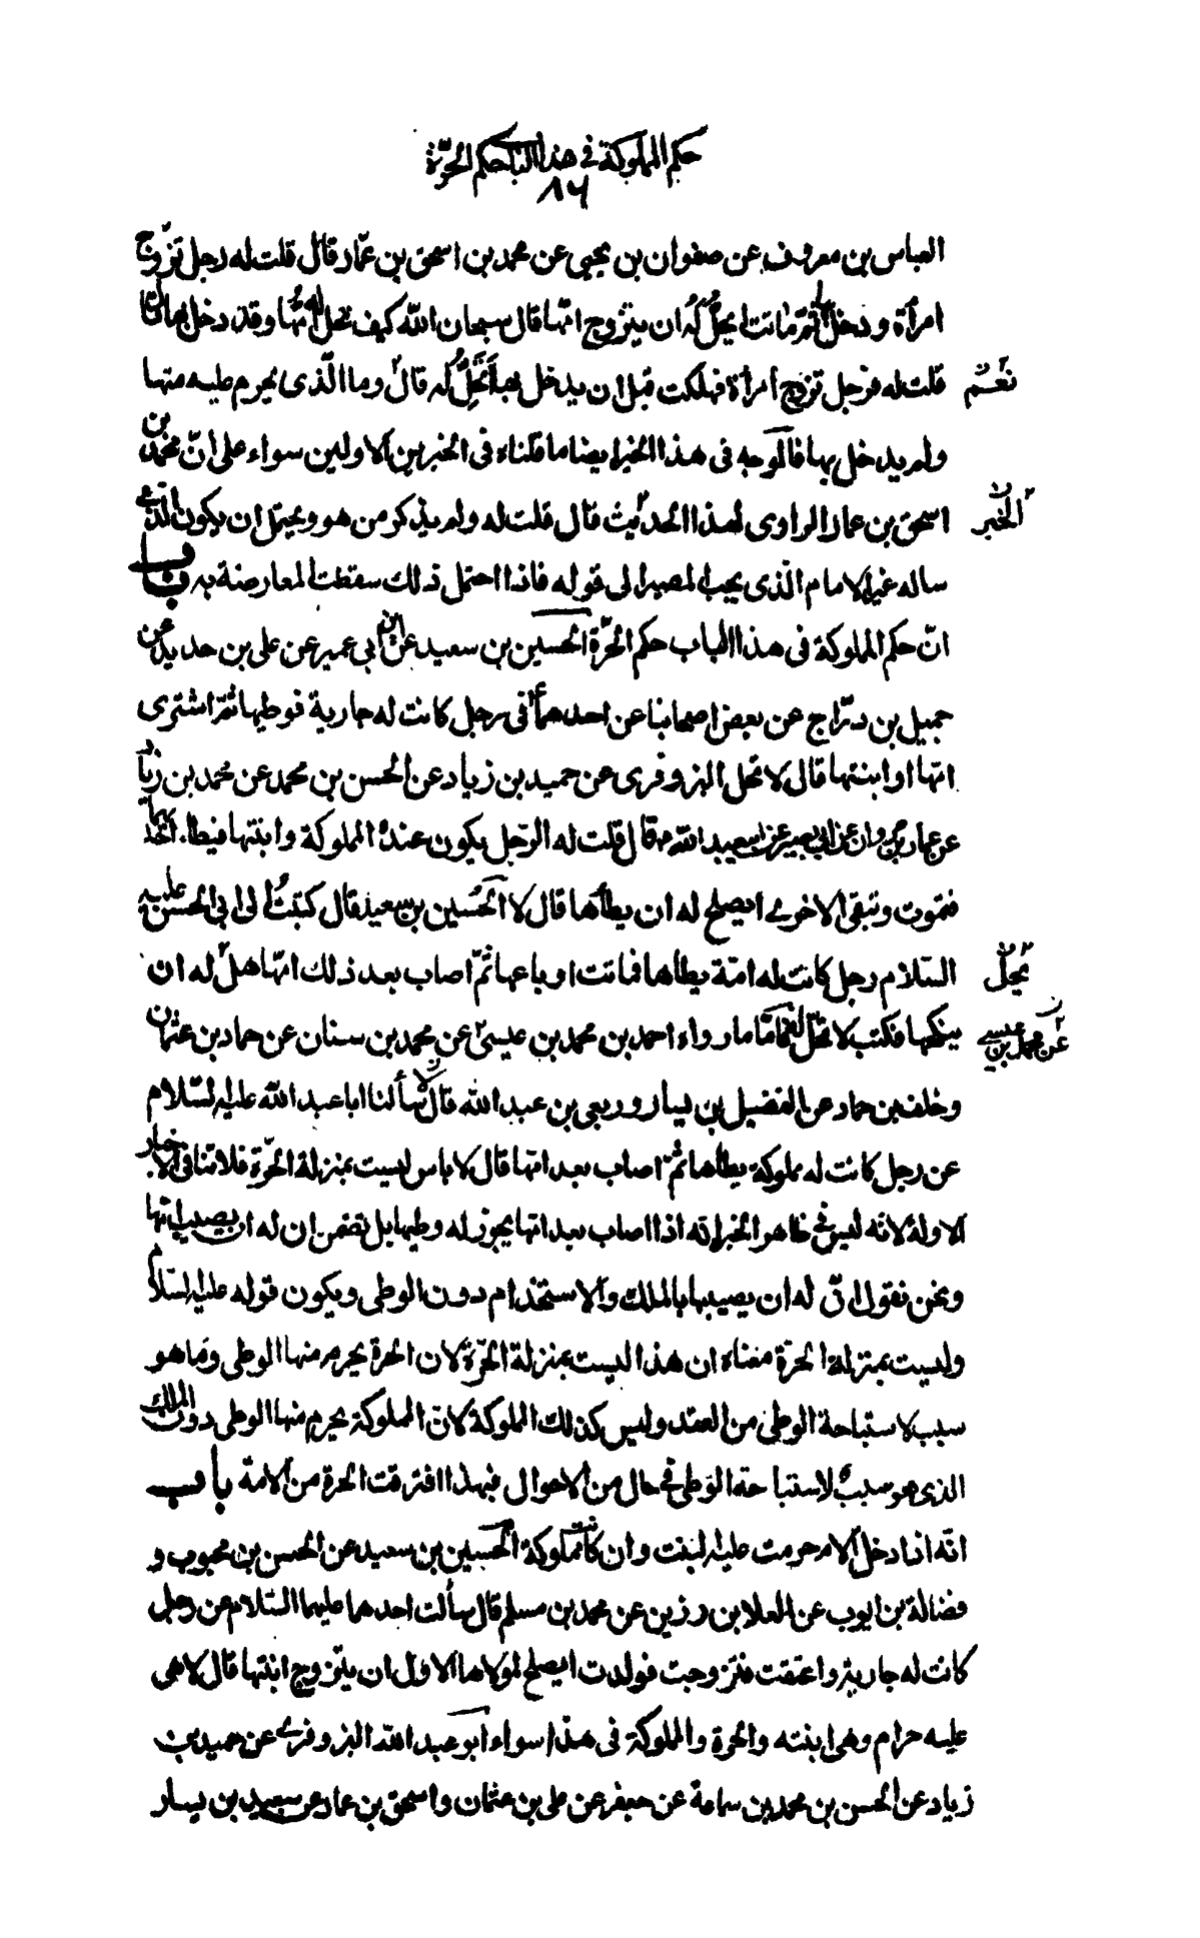 حكم المملوكة في هذا الباب حكم الحرّة
٨٦
العباس بن معروف عن صفوان بن يحيى عن محمد بن اسحق بن عمّار قال قلت له رجل تزوّج
امرأة ودخل بها ثمّ ماتت ايحلّ له ان يتزوج امّها قال سبحان الله كيف تحل له امّها وقد دخل بها قال
قلت له فرجل تزوج امرأة فهلكت قبل ان يدخل بها تحلّ له قال وما الّذى يحرم عليه منها
نعم
ولم يدخل بها فالوجه فى هذا الخبر ايضا ما قلناه فى الخبرين الاولين سواء على انّ محمد بن
اسحق بن عمار الراوى لهذا الحديث قال قلت له ولم يذكر من هو ويحتمل ان يكون الذى
الخبر
ساله غير الامام الّذى يجب المصير الى قوله فاذا احتمل ذلك سقطت المعارضة به باب
انّ حكم المملوكة فى هذا الباب حكم الحرّة الحسين بن سعيد عن ابن ابى عمير عن على بن حديد عن
جميل بن درّاج عن بعض اصحابنا عن احدهما فى رجل كانت له جارية فوطيها ثمّ اشترى
امّها او ابنتها قال لا تحل البزوفرى عن حميد بن زياد عن الحسن بن محمد عن محمد بن زياد
عن عمار بن مروان عن ابى بصير عن ابى عبد الله قال قلت له الرّجل يكون عنده المملوكة وابنتها فيطاء احداهما
فتموت وتبقى الاخرى ايصلح له ان يطأها قال لا الحسين بن سعيد قال كتبت الى ابى الحسن عليه
السّلام رجل كانت له امة يطاها فماتت او باعها ثمّ اصاب بعد ذلك امّها هل له ان
يحلّ
ينكحها فكتب لا تحلّ له فامّا ما رواه احمد بن محمد بن عيسى عن محمد بن سنان عن حماد بن عثمان
عن محمد بن عيسى
وخلف بن حماد عن الفضيل بن يسار وربعى بن عبد الله قال سألنا ابا عبد الله عليه السّلام
عن رجل كانت له مملوكة يطاها ثمّ اصاب بعد امّها قال لا باس ليست بمنزلة الحرّة فلا تنافى الاخبار
الاولة لانّه ليس فى ظاهر الخبر انّه اذا اصاب بعد امّها يجوز له وطيها بل تضمن ان له ان يصيب امّها
ونحن نقول انّ له ان يصيبها بالملك والاستخدام دون الوطى ويكون قوله عليه السّلام
وليست بمنزلة الحرّة معناه ان هذا ليست بمنزلة الحرّة لان الحرة يحرم منها الوطى وما هو
سبب لاستباحة الوطى من العقد وليس كذلك المملوكة لانّ المملوكة يحرم منها الوطى دون الملك
الذى هو سبب لاستباحة الوطى فى حال من الاحوال فبهذا افترقت الحرة من الامة باب
انّه اذا دخل بالام حرمت عليه البنت وان كانت مملوكة الحسين بن سعيد عن الحسن بن محبوب و
فضالة بن ايوب عن العلا بن رزين عن محمد بن مسلم قال سألت احدهما عليهما السّلام عن رجل
كانت له جارية واعتقت فتزوجت فولدت ايصلح لمولاها الاول ان يتزوج ابنتها قال لا هى
عليه حرام وهى ابنته والحرة والمملوكة فى هذا سواء ابو عبد الله البزوفرى عن حميد بن
زياد عن الحسن بن محمد بن سماعة عن جعفر عن على بن عثمان واسحق بن عمار عن سعيد بن يسار